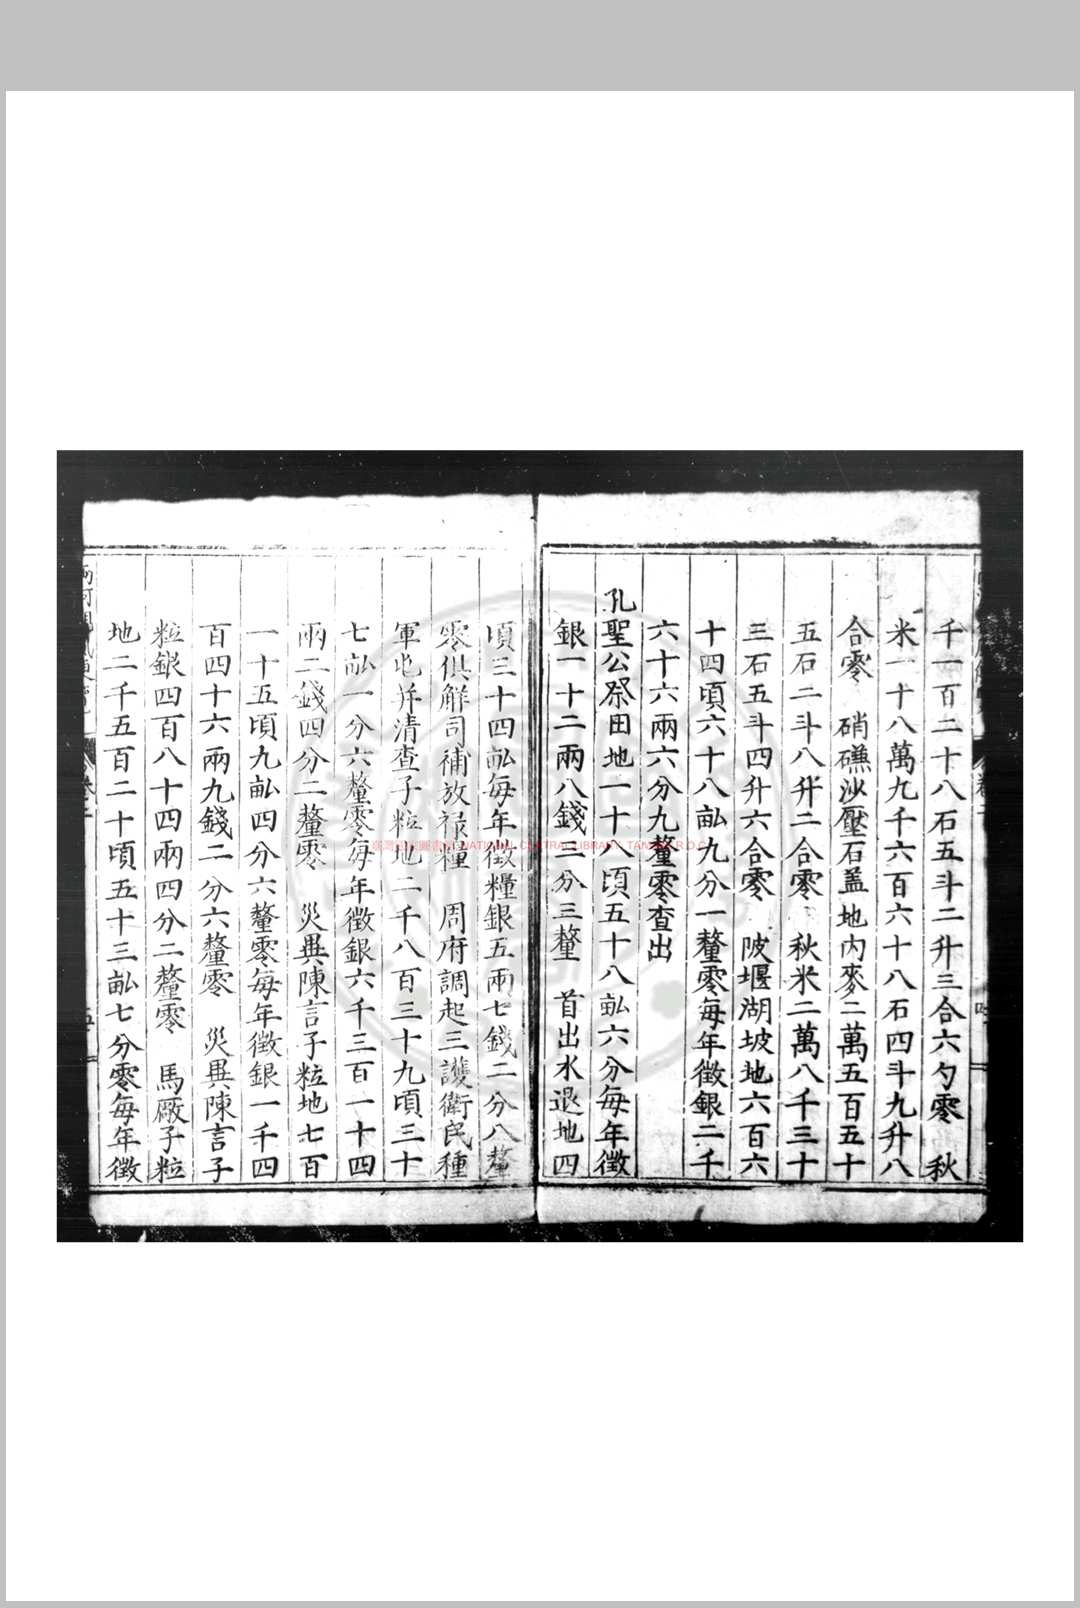 千一百二十八石五斗二升三合六勺零　秋
米一十八萬九千六百六十八石四斗九升八
合零　硝磏沙壓石蓋地內麥二萬五百五十
五石二斗八升二合零　秋米二萬八千三十
三石五斗四升六合零　陂堰湖坡地六百六
十四頃六十八畝九分一釐零每年徵銀二千
六十六兩六分九釐零查出
孔聖公祭田地一十八頃五十八畝六分每年徵
銀一十二兩八錢三分三釐　首出水退地四
頃三十四畝每年徵糧銀五兩七錢二分八釐
零俱解司補放祿糧　周府調起三護衛民種
軍屯并清查子粒地二千八百三十九頃三十
七畝一分六釐零每年徵銀六千三百一十四
兩二錢四分二釐零　災異陳言子粒地七百
一十五頃九畝四分六釐零每年徵銀一千四
百四十六兩九錢二分六釐零　災異陳言子
粒銀四百八十四兩四分二釐零　馬廠子粒
地二千五百二十頃五十三畝七分零每年徵
NATIONAL CENTRAL LIBRARY, TAIWAN, R.O.C.